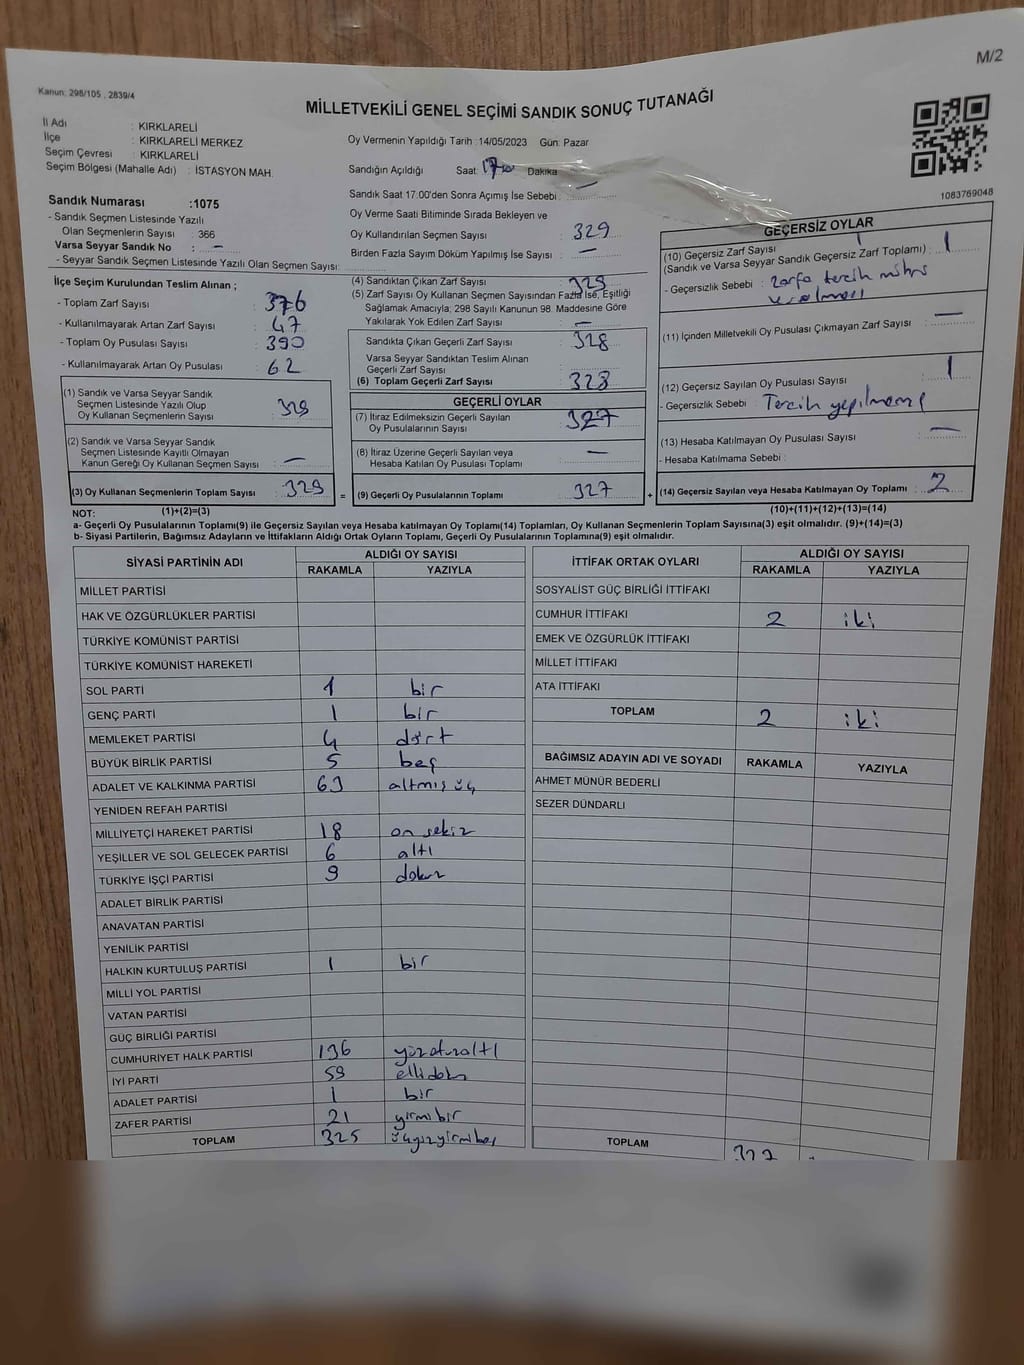 M/2
Kanun: 298/105 , 2839/4
MİLLETVEKİLİ GENEL SEÇİMİ SANDIK SONUÇ TUTANAĞI
İl Adı : KIRKLARELİ
İlçe : KIRKLARELİ MERKEZ
Seçim Çevresi : KIRKLARELİ
Seçim Bölgesi (Mahalle Adı) : İSTASYON MAH.
Sandık Numarası :1075
- Sandık Seçmen Listesinde Yazılı
Olan Seçmenlerin Sayısı : 366
Varsa Seyyar Sandık No : –
- Seyyar Sandık Seçmen Listesinde Yazılı Olan Seçmen Sayısı:
Oy Vermenin Yapıldığı Tarih : 14/05/2023 Gün: Pazar
Sandığın Açıldığı Saat: 17 Dakika
Sandık Saat 17:00'den Sonra Açımış İse Sebebi : –
Oy Verme Saati Bitiminde Sırada Bekleyen ve
Oy Kullandırılan Seçmen Sayısı : 329
Birden Fazla Sayım Döküm Yapılmış İse Sayısı : –
1083769048
İlçe Seçim Kurulundan Teslim Alınan ;
- Toplam Zarf Sayısı : 376
- Kullanılmayarak Artan Zarf Sayısı : 47
- Toplam Oy Pusulası Sayısı : 390
- Kullanılmayarak Artan Oy Pusulası : 62
(1) Sandık ve Varsa Seyyar Sandık
Seçmen Listesinde Yazılı Olup
Oy Kullanan Seçmenlerin Sayısı : 329
(2) Sandık ve Varsa Seyyar Sandık
Seçmen Listesinde Kayıtlı Olmayan
Kanun Gereği Oy Kullanan Seçmen Sayısı : –
(3) Oy Kullanan Seçmenlerin Toplam Sayısı : 329
(4) Sandıktan Çıkan Zarf Sayısı : 329
(5) Zarf Sayısı Oy Kullanan Seçmen Sayısından Fazla İse, Eşitliği
Sağlamak Amacıyla; 298 Sayılı Kanunun 98. Maddesine Göre
Yakılarak Yok Edilen Zarf Sayısı : –
Sandıkta Çıkan Geçerli Zarf Sayısı : 328
Varsa Seyyar Sandıktan Teslim Alınan
Geçerli Zarf Sayısı :
(6) Toplam Geçerli Zarf Sayısı : 328
GEÇERLİ OYLAR
(7) İtiraz Edilmeksizin Geçerli Sayılan
Oy Pusulalarının Sayısı : 327
(8) İtiraz Üzerine Geçerli Sayılan veya
Hesaba Katılan Oy Pusulası Toplamı : –
= (9) Geçerli Oy Pusulalarının Toplamı : 327
GEÇERSİZ OYLAR
(10) Geçersiz Zarf Sayısı : 1
(Sandık ve Varsa Seyyar Sandık Geçersiz Zarf Toplamı) : 1
- Geçersizlik Sebebi : Zarfa tercih mührü
(11) İçinden Milletvekili Oy Pusulası Çıkmayan Zarf Sayısı : –
(12) Geçersiz Sayılan Oy Pusulası Sayısı : 1
- Geçersizlik Sebebi : Tercih yapılmamış
(13) Hesaba Katılmayan Oy Pusulası Sayısı : –
- Hesaba Katılmama Sebebi :
+ (14) Geçersiz Sayılan veya Hesaba Katılmayan Oy Toplamı : 2
NOT: (1)+(2)=(3) (10)+(11)+(12)+(13)=(14)
a- Geçerli Oy Pusulalarının Toplamı(9) ile Geçersiz Sayılan veya Hesaba katılmayan Oy Toplamı(14) Toplamları, Oy Kullanan Seçmenlerin Toplam Sayısına(3) eşit olmalıdır. (9)+(14)=(3)
b- Siyasi Partilerin, Bağımsız Adayların ve İttifakların Aldığı Ortak Oyların Toplamı, Geçerli Oy Pusulalarının Toplamına(9) eşit olmalıdır.
SİYASİ PARTİNİN ADI ALDIĞI OY SAYISI
RAKAMLA YAZIYLA
MİLLET PARTİSİ
HAK VE ÖZGÜRLÜKLER PARTİSİ
TÜRKİYE KOMÜNİST PARTİSİ
TÜRKİYE KOMÜNİST HAREKETİ
SOL PARTİ 1 bir
GENÇ PARTİ 1 bir
MEMLEKET PARTİSİ 4 dört
BÜYÜK BİRLİK PARTİSİ 5 beş
ADALET VE KALKINMA PARTİSİ 63 altmış üç
YENİDEN REFAH PARTİSİ
MİLLİYETÇİ HAREKET PARTİSİ 18 on sekiz
YEŞİLLER VE SOL GELECEK PARTİSİ 6 altı
TÜRKİYE İŞÇİ PARTİSİ 9 dokuz
ADALET BİRLİK PARTİSİ
ANAVATAN PARTİSİ
YENİLİK PARTİSİ
HALKIN KURTULUŞ PARTİSİ 1 bir
MİLLİ YOL PARTİSİ
VATAN PARTİSİ
GÜÇ BİRLİĞİ PARTİSİ
CUMHURİYET HALK PARTİSİ 136 yüzotuzaltı
İYİ PARTİ 59 ellidokuz
ADALET PARTİSİ 1 bir
ZAFER PARTİSİ 21 yirmibir
TOPLAM 325 üçyüzyirmibeş
İTTİFAK ORTAK OYLARI ALDIĞI OY SAYISI
RAKAMLA YAZIYLA
SOSYALİST GÜÇ BİRLİĞİ İTTİFAKI
CUMHUR İTTİFAKI 2 iki
EMEK VE ÖZGÜRLÜK İTTİFAKI
MİLLET İTTİFAKI
ATA İTTİFAKI
TOPLAM 2 iki
BAĞIMSIZ ADAYIN ADI VE SOYADI RAKAMLA YAZIYLA
AHMET MÜNÜR BEDERLİ
SEZER DÜNDARLI
TOPLAM 327